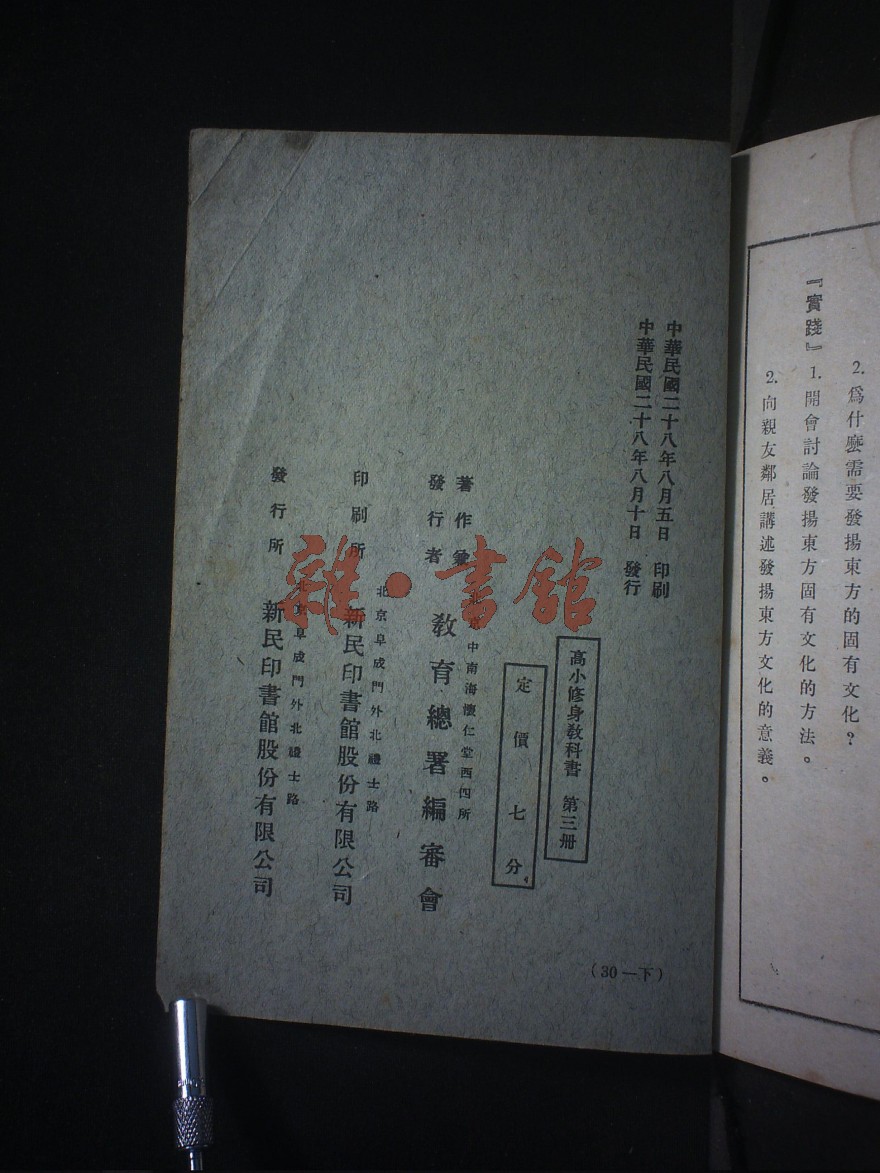 2. 爲什麽需要發揚東方的固有文化？
『實踐』1. 開會討論發揚東方固有文化的方法。
2. 向親友鄰居講述發揚東方文化的意義。
中華民國二十八年八月五日 印刷
中華民國二十八年八月十日 發行
高小修身敎科書 第三册
定價七分
著作兼
發行者
中南海懷仁堂西四所
敎育總署編審會
北京阜成門外北禮士路
印刷所 新民印書館股份有限公司
北京阜成門外北禮士路
發行所 新民印書館股份有限公司
（30—下）
雜·書館